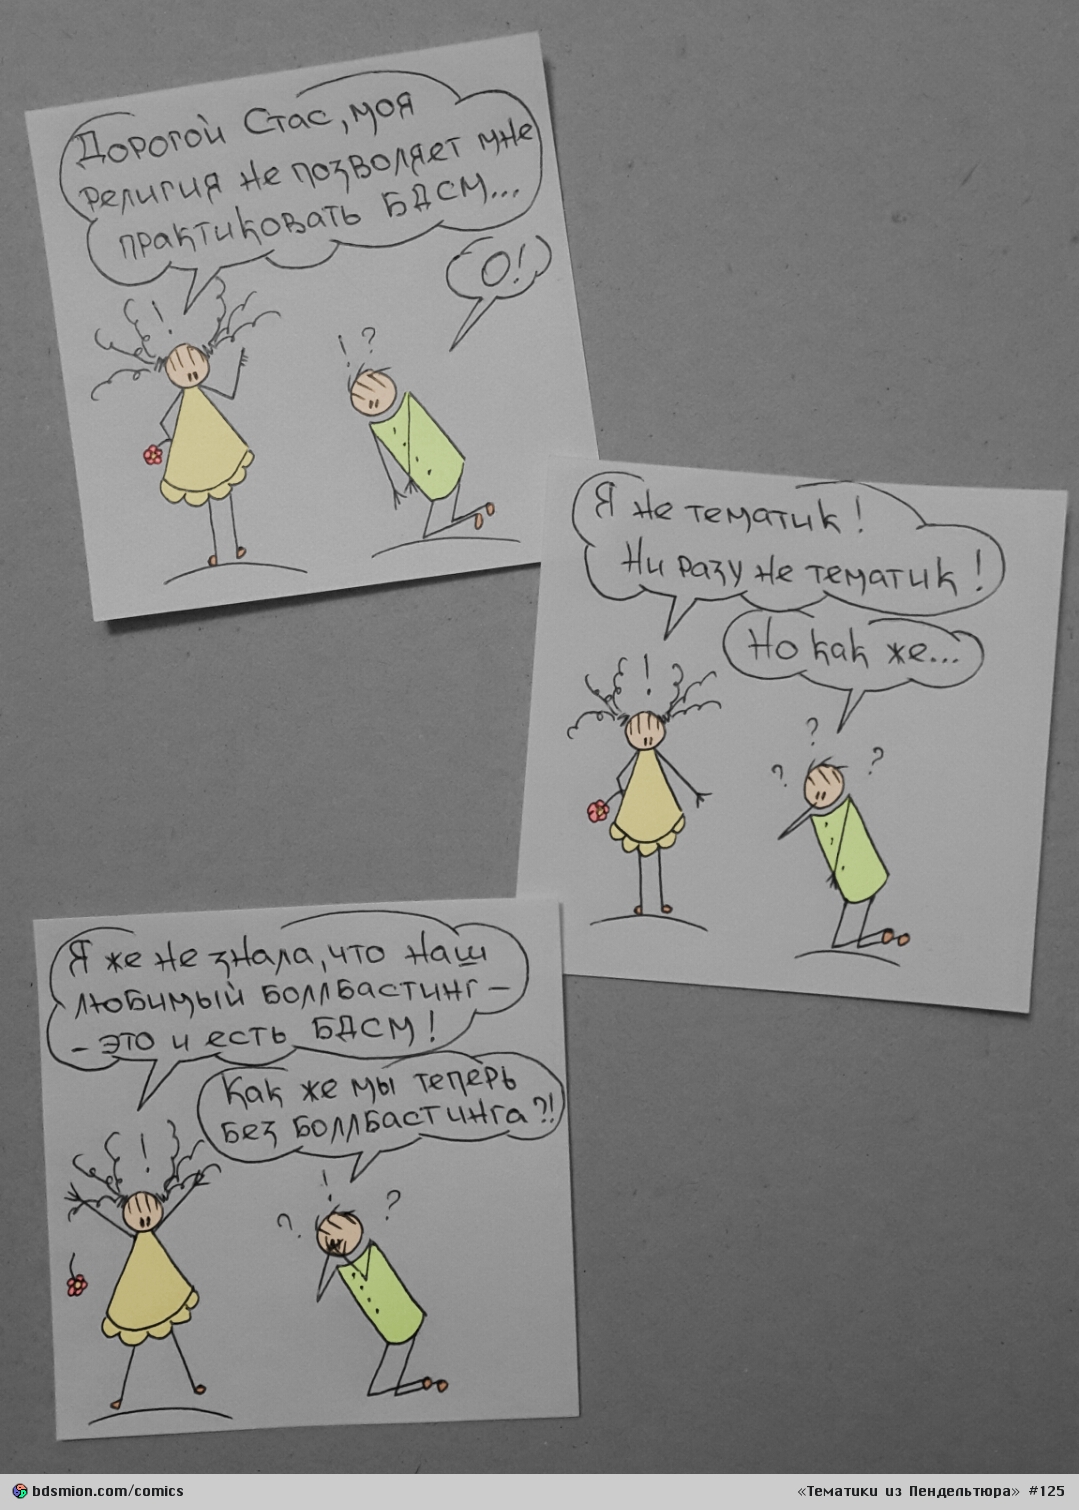 Дорогой Стас, моя
религия не позволяет мне
практиковать БДСМ...
О!
! ?
!
Я не тематик!
Ни разу не тематик!
Но как же...
!
?
? ?
Я же не знала, что наш
любимый боллбастинг –
– это и есть БДСМ!
Как же мы теперь
без боллбастинга?!
!
!
? ?
bdsmion.com/comics
«Тематики из Пендельтюра» #125